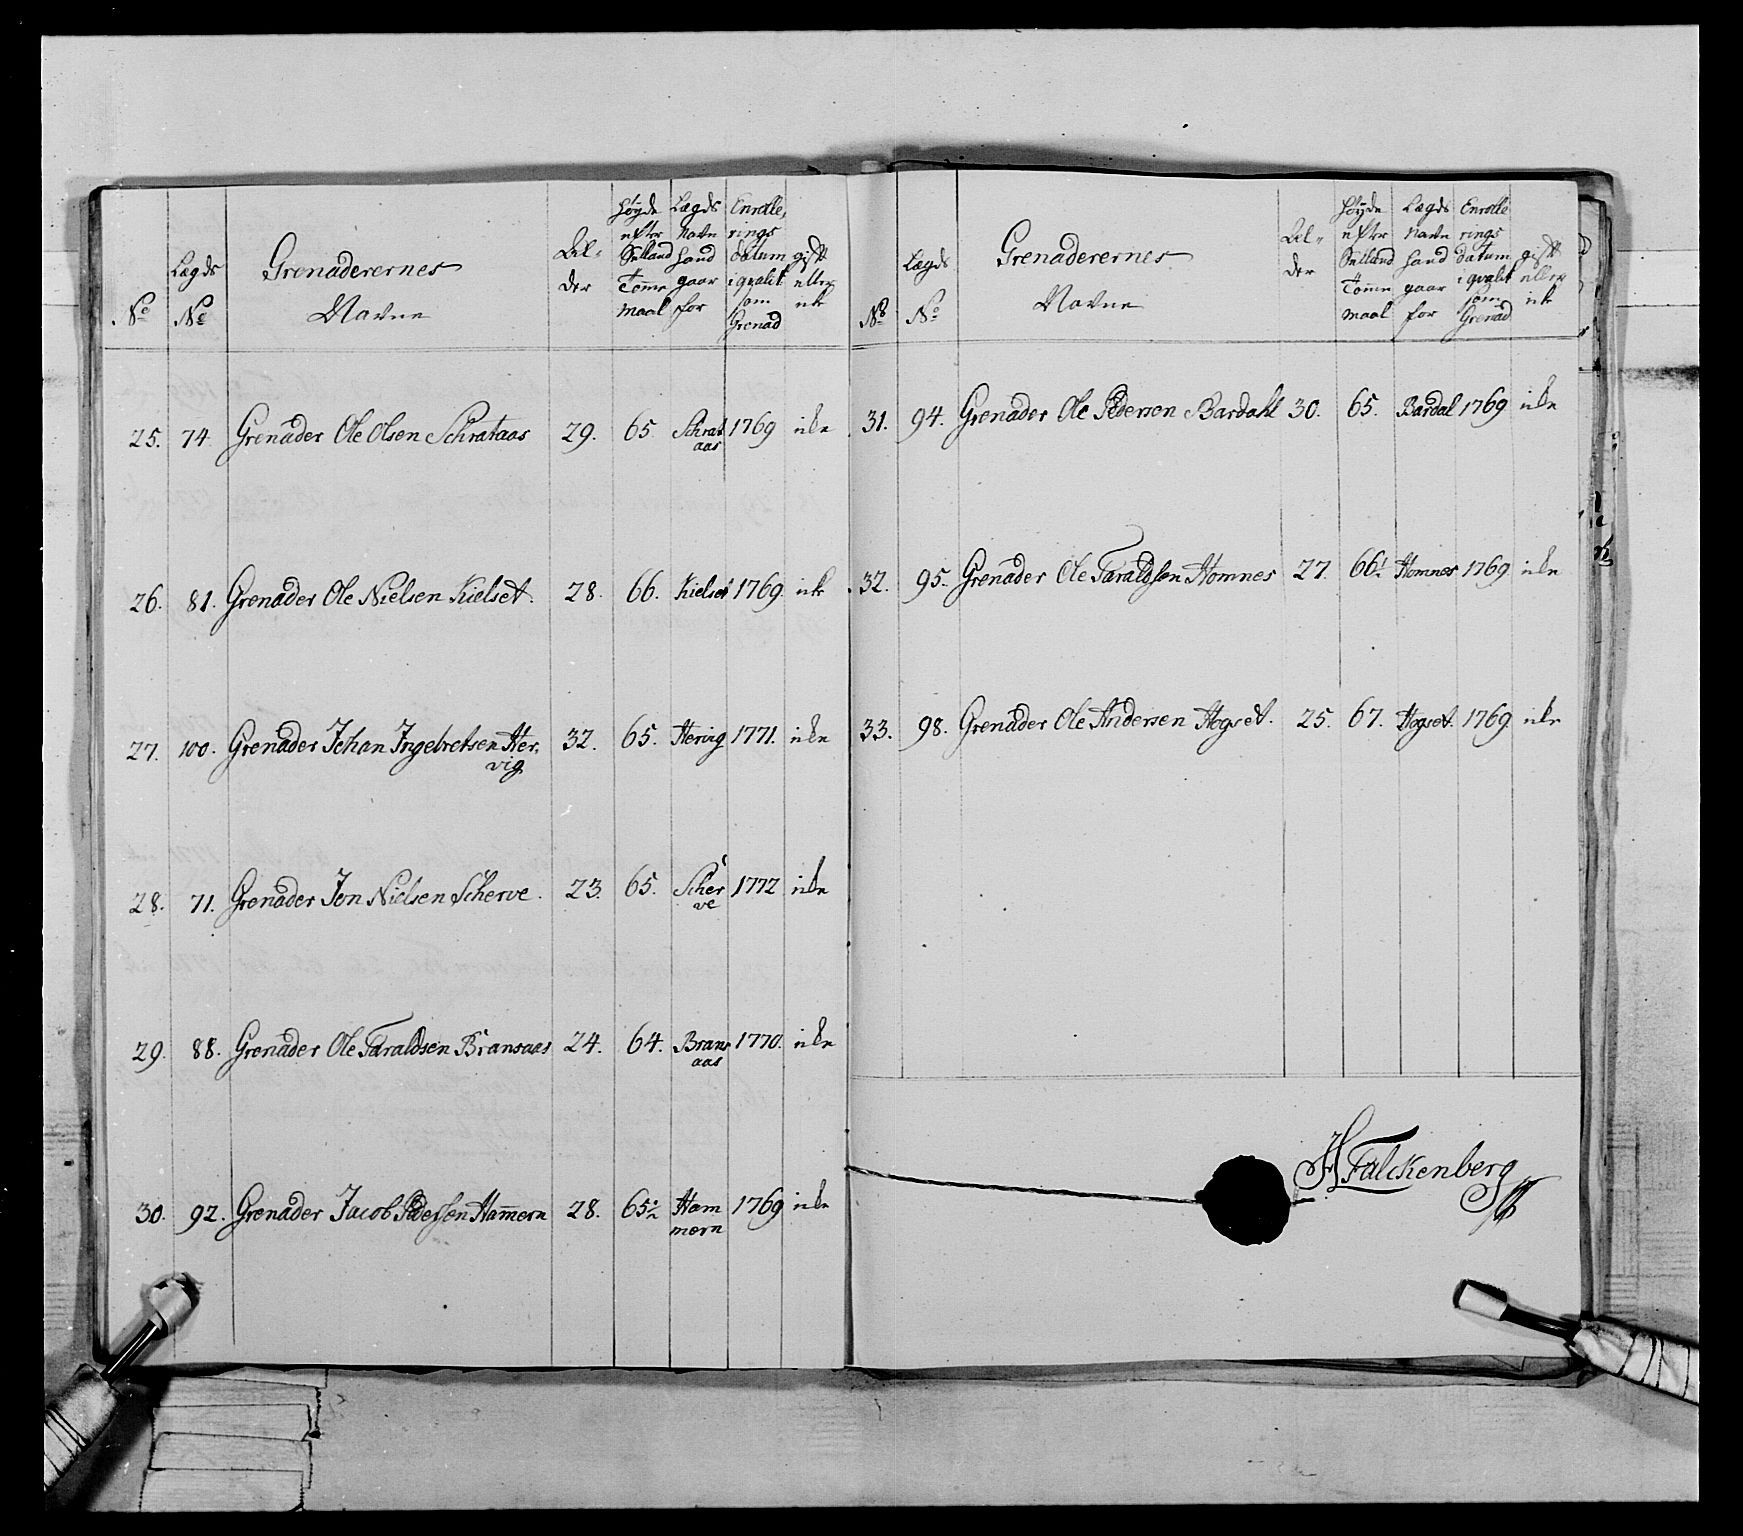 No
Lægds No
Grenaderernes Navne
Al- der
høyde efter Selland Tom̄e maal
Lægds Navn hand gaar for
Enrolle, rings datum i qvalit som Grenad
gift eller ik
25. 74. Grenader Ole Olsen Schrataas 29. 65 Schrat aas 1769 ikke
26. 81. Grenader Ole Nielsen Kielset. 28. 66. Kielset 1769 ik
27. 100. Grenader Johan Ingebretsen Her, vig 32. 65. Hervig 1771. ikke
28. 71. Grenader Jon Nielsen Scherve. 23. 65. Scher ve 1772 ikke
29. 88. Grenader Ole Taraldsen Bransaas 24. 64. Brans aas 1770. ikke
30. 92. Grenader Jacob Pedersen Ham̄ern 28. 65½ Ham mern 1769 ikke
No
Lægds No
Grenaderernes Navne
Al- der
høyde efter Selland Tom̄e maal
Lægds Navn hand gaar for
Enrolle rings datum i qvalit som Grenad
gift eller ik
31. 94. Grenader Ole Pederson Bardahl 30. 65. Bardal 1769 ikke
32. 95. Grenader Ole Taraldsen Homnes 27. 66½ Homnes 1769 ikke
33. 98. Grenader Ole Andersen Hogset. 25. 67. Hogset. 1769 ikke
H Falckenberg